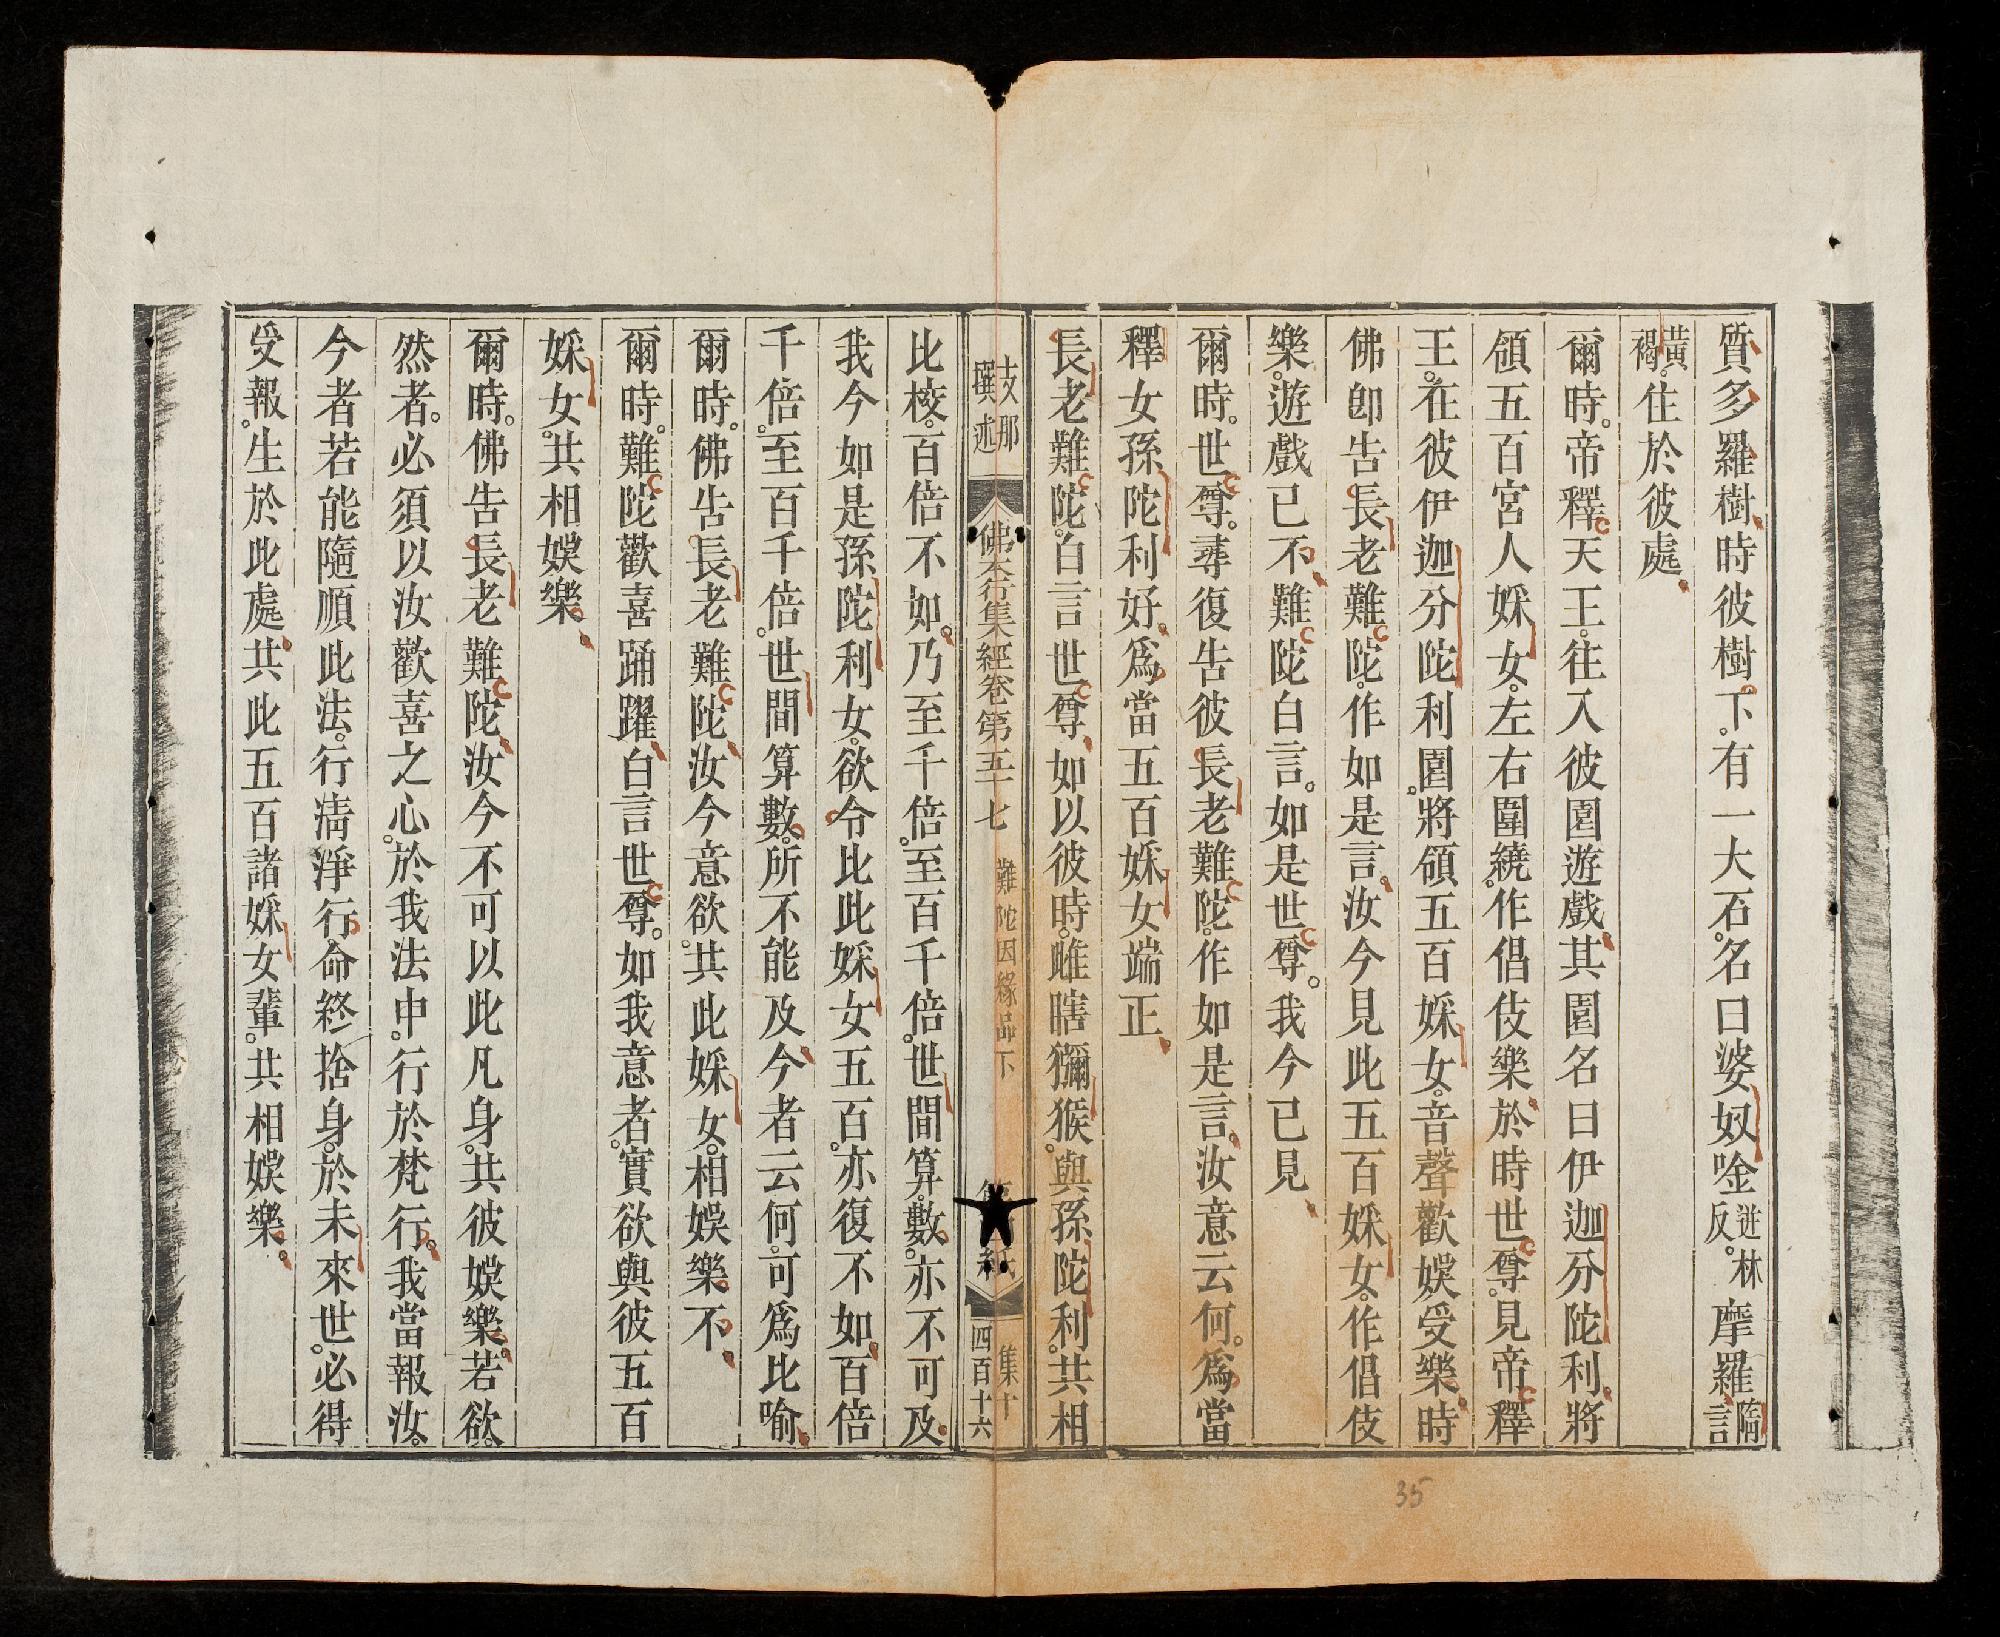 質多羅樹。時彼樹下。有一大石。名曰婆奴唫迸林反。摩羅隋言
黃褐。住於彼處。
爾時。帝釋天王。往入彼園遊戲。其園名曰伊迦分陀利。將
領五百宮人婇女。左右圍繞。作倡伎樂。於時世尊。見帝釋
王。在彼伊迦分陀利園。將領五百婇女。音聲歡娛受樂。時
佛卽告長老難陀。作如是言。汝今見此五百婇女。作倡伎
樂。遊戲已不。難陀白言。如是世尊。我今已見。
爾時。世尊。尋復告彼長老難陀。作如是言。汝意云何。爲當
釋女孫陀利好。爲當五百婇女端正。
長老難陀。白言世尊。如以彼時。雌瞎獼猴。與孫陀利。共相
支那撰述
佛本行集經卷第五十七
難陀因緣品下
紙
集十
四百十六
比校。百倍不如。乃至千倍。至百千倍。世間算數。亦不可及。
我今如是孫陀利女。欲令比此婇女五百。亦復不如。百倍
千倍。至百千倍。世間算數。所不能及。今者云何。可爲比喻。
爾時。佛告長老難陀。汝今意欲。共此婇女。相娛樂不。
爾時。難陀歡喜踊躍。白言世尊。如我意者。實欲與彼五百
婇女。共相娛樂。
爾時。佛告長老難陀。汝今不可以此凡身。共彼娛樂。若欲
然者。必須以汝歡喜之心。於我法中。行於梵行。我當報汝。
今者若能隨順此法。行清淨行。命終捨身。於未來世。必得
受報。生於此處。共此五百諸婇女輩。共相娛樂。
35